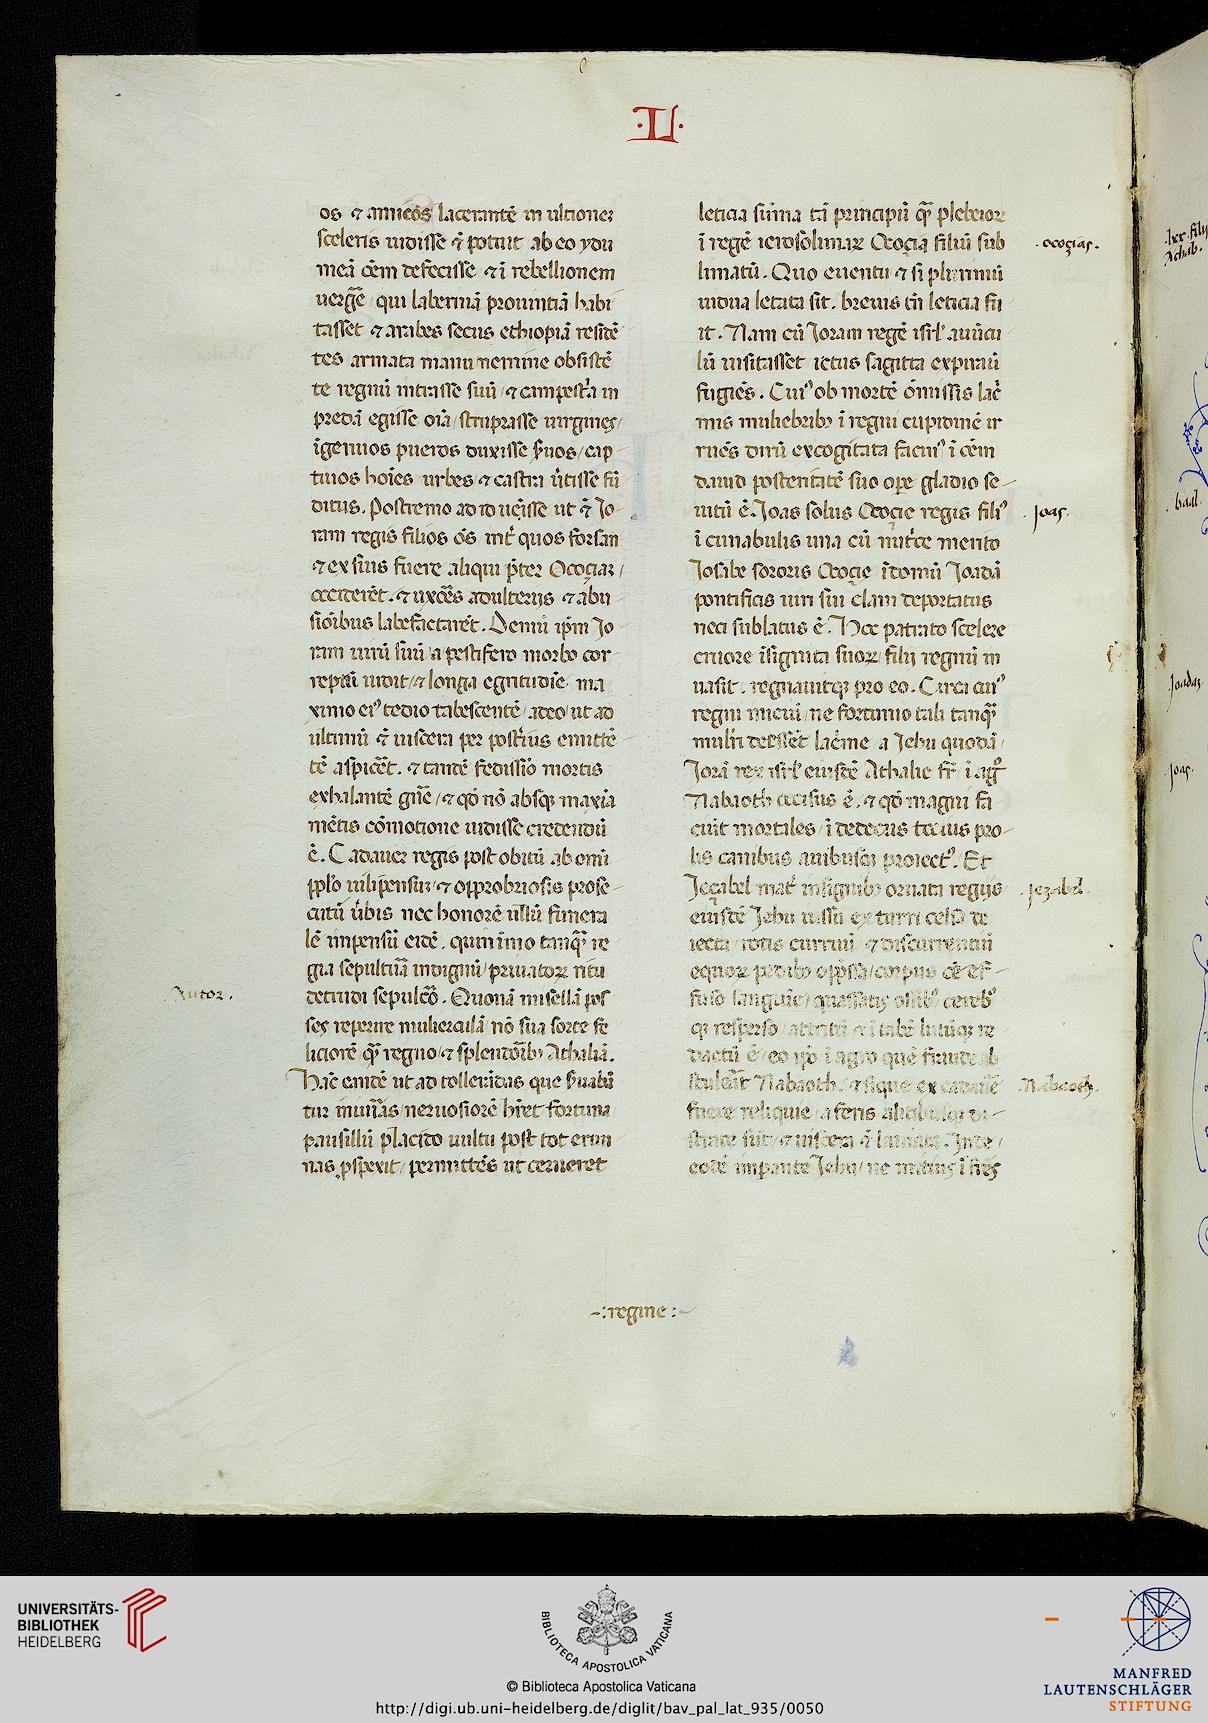 ·L·
os ⁊ amicos lacerantē in ultioneꝫ
sceleris uidisse ⁊ potuit ab eo ydu
meā oēm defecisse ⁊ ī rebellionem
uergē qui labernā prouintiā habi
tasset ⁊ arabes secus ethiopiā residē
tes armata manu nemine obsistē
te regnū intrasse suū / ⁊ campestria in
predā egisse oīa / stuprasse uirgines /
īgenuos pueros duxisse s̄uos / cap
tiuos hoīes urbes ⁊ castra
ditus. Postremo ad id ut ⁊ Jo
ram regis filios os̄ int̄ quos forsan
⁊ ex suis fuere aliqui p̄ter Ocoçiaꝫ /
occiderēt. ⁊ uxōes adulterijs ⁊ abu
siōibus labefactarēt. Demū ip̄m Jo
ram uirū suū / a pestifero morbo cor
reptū uidit / ⁊ longa egritudīe ma
ximo eiꝰ tedio tabescentē / adeo / ut ad
ultimū ⁊ uiscera per posterius emittē
tē aspicēt. ⁊ tandē fedissīo mortis
exhalantē gn̄e / ⁊ qd̄ nō absqꝫ maxīa
mētis cōmotione uidisse credendū
ē. Cadauer regis post obitū ab omī
pp̄lo uilipensuꝫ / ⁊ opprobriosis prose-
cutū ūbis nec honorē ullū funera
lē impensū eidē. quinimo tanqꝫ re
gia sepultura indignū / priuatoꝝ ritu
detrudi sepulcro. Quonā misellā pos
ses reperire mulierculā / nō sua sorte fe
liciorē qꝫ regno / ⁊ splendorībꝫ Athaliā.
Hāc enīdē ut ad tollerādas que s̄uabā
tur iniurias / neruosiorē hr̄et fortuna
pausillū placido uultu post tot erun
nas pspexit / permittēs ut cerneret
Autor.
leticia sūma tā principū qꝫ plebeioꝝ
ī regē ierosolimaꝝ Ocoçiā filiū sub
limatū. Quo euentu ⁊ si plurimū
uidua letata sit. breuis tn̄ leticia fu
it. Nam cū Joram regē isrl̄ auūcu
lū uisitasset ictus sagitta expirauit
fugiēs. Cuiꝰ ob mortē ōmissis lac̄
mis muliebribꝫ ī regni cupidinē ir
ruēs dirū excogitata facinꝰ ī oēm
dauid posteritatē suo ope gladio se-
uitū ē. Joas solus Ocoçie regis filiꝰ
ī cunabulis una cū nutrice merito
Josabe sororis Ocoçie ī domū Joadā
pontificis uiri sui clam deportatus
neci sublatus ē. Hoc patrato scelere
cruore īsignita suoꝝ / filij regnū in
uasit. regnauitqꝫ pro eo. Circa cuiꝰ
regni inicui / ne fortunio tali tanqꝫ
multi deessēt lac̄ime a Jehu quodā /
Jorā rex isrl̄ eiusdē Athalie fr̄ / ī agro
Nabaoth occisus ē. ⁊ qd̄ magni fa
ciūt mortales / ī dedecus tocius pro-
lis canibus auibusqꝫ proiectꝰ. Et
Jeçabel mat̄ insignibꝫ ornata regijs
eiusdē Jehu iussu ex turri celsa de
iecta / rotis curruū ⁊ discurrentiū
equoꝝ pedibꝫ opp̄ssa / corpus ef-
fuso sanguīe / quassatis ossibꝰ cerebꝰ
qꝫ resperso / attritū ⁊ ī tabē lutūqꝫ re
dactū ē / eo ip̄o ī agro quē fraude ab
stulerat Nabaoth. ⁊ sique ex cadauē
fuere reliquie / a feris alitibusqꝫ di-
stracte sūt / ⁊ uiscera laniata. Inde /
eodē impante Jehu / ne maius ī fies
·ocoçias·
·Joas·
·Jeçabel·
·Nabaoth·
-:regine:-
her. filij
Achab.
baal
Joadas
Joas.
UNIVERSITÄTS-
BIBLIOTHEK
HEIDELBERG
BIBLIOTECA APOSTOLICA VATICANA
© Biblioteca Apostolica Vaticana
http://digi.ub.uni-heidelberg.de/diglit/bav_pal_lat_935/0050
MANFRED
LAUTENSCHLÄGER
STIFTUNG